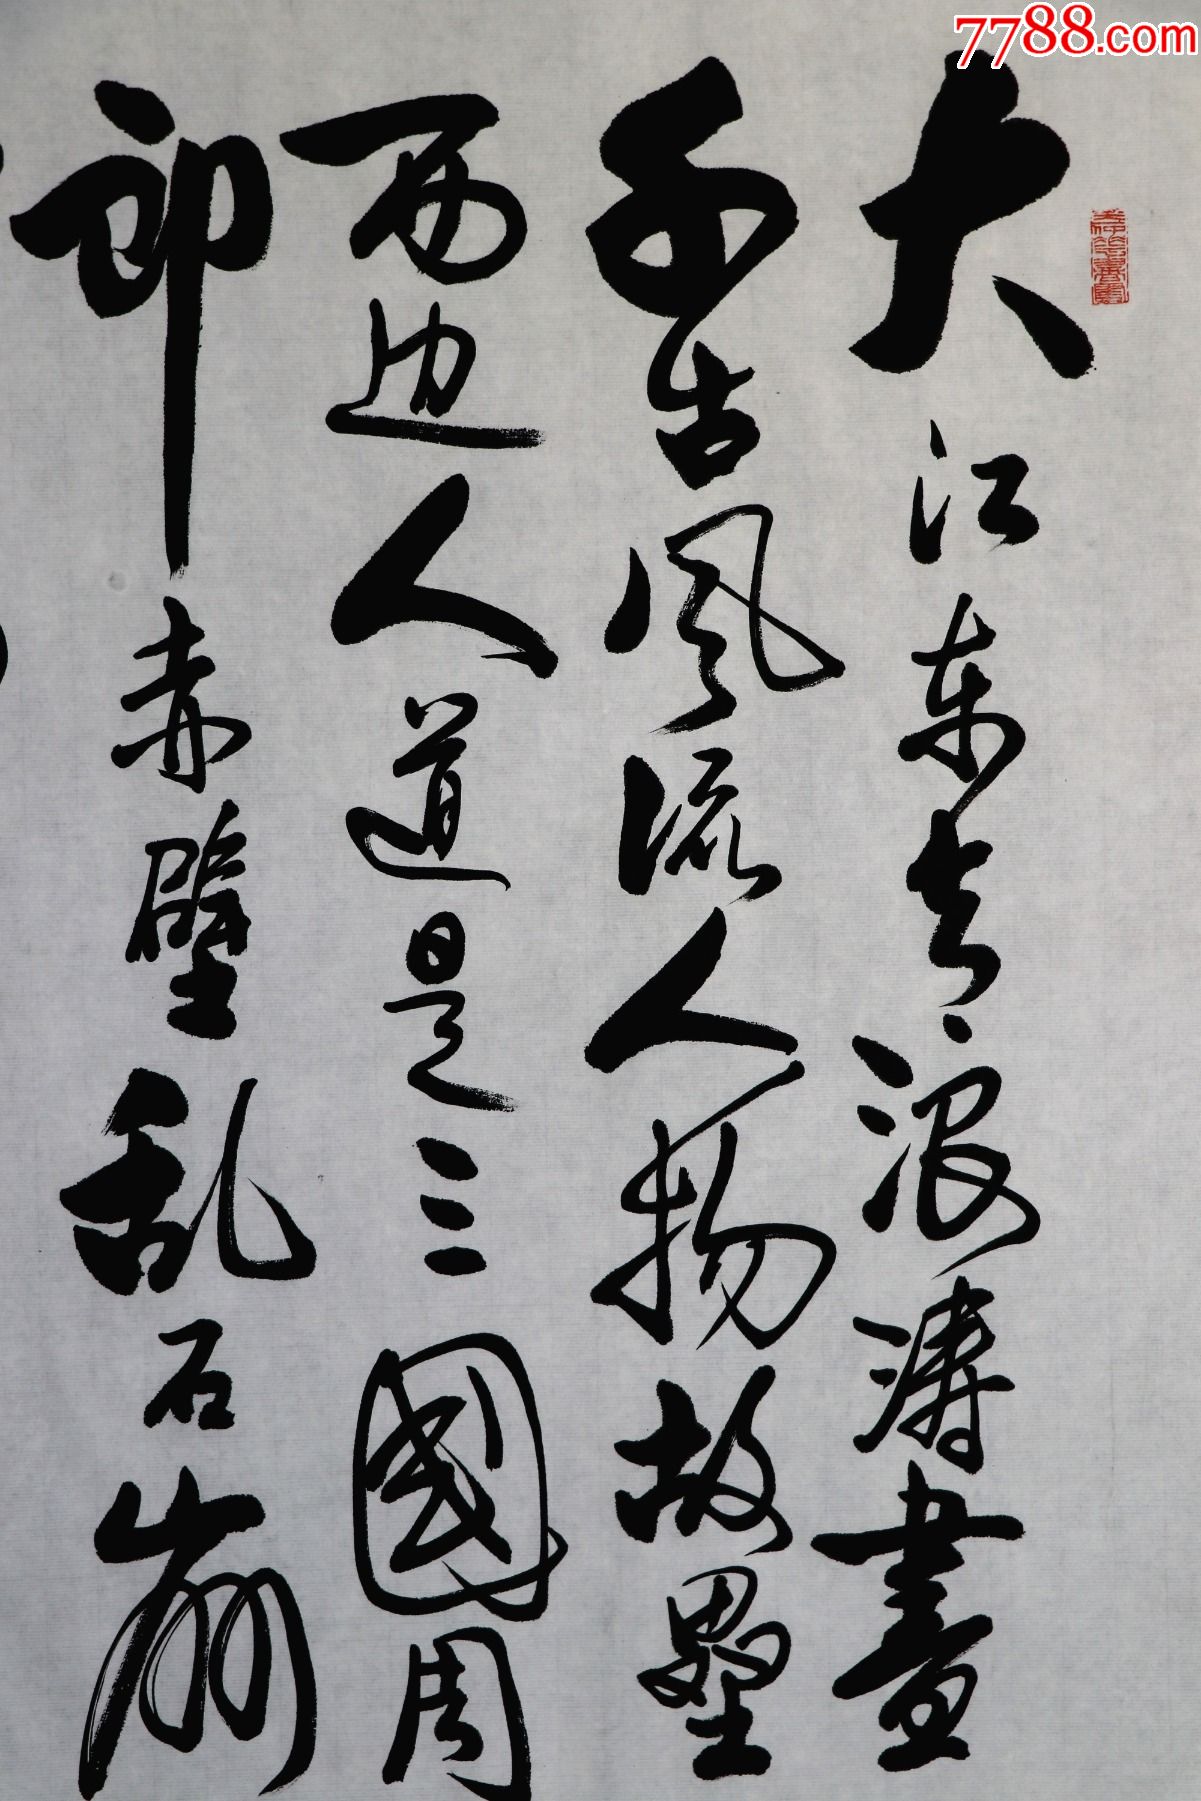 7788.com
大江东去浪涛畫
千古风流人物故壘
西边人道是三國周
郎赤壁乱石崩